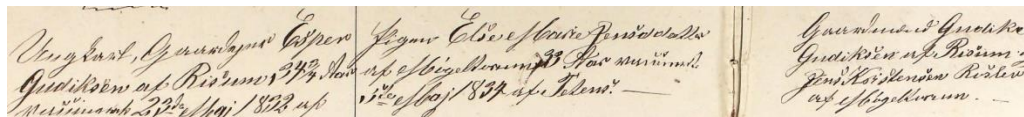 Ungkarl, Gaardejer Esper
Gudiksen af Risum, 34 3/4 Aar
vaccineret 23de Maj 1832 af
Pigen Else Marie Jensdatter
af Møgeltrum 33 Aar vaccineret
5te Maj 1834 af Tetens. —
Gaardmænd Gudik
Gudiksen af Risum
Jens Kristensen
af Møgeltrum. —